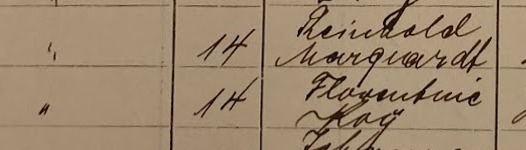 " 14 Reinhold
Marquardt
" 14 Florentine
Koÿ